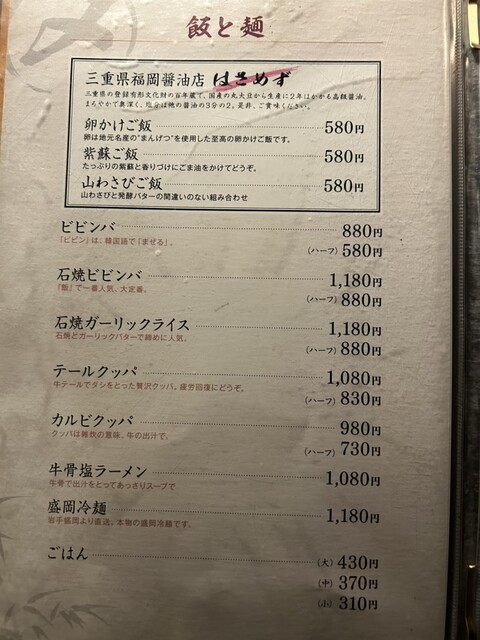 飯と麺
三重県福岡醤油店 はさめず
三重県の登録有形文化財の百年蔵で、国産の丸大豆から生産に2年はかかる高級醤油。
まろやかで奥深く、塩分は他の醤油の3分の2。是非、ご賞味ください。
卵かけご飯 580円
卵は地元名産の"まんげつ"を使用した至高の卵かけご飯です。
紫蘇ご飯 580円
たっぷりの紫蘇と香りづけにごま油をかけてどうぞ。
山わさびご飯 580円
山わさびと発酵バターの間違いのない組み合わせ
ビビンバ 880円
「ビビン」は、韓国語で「まぜる」。
(ハーフ) 580円
石焼ビビンバ 1,180円
「飯」で一番人気。大定番。
(ハーフ) 880円
石焼ガーリックライス 1,180円
石焼とガーリックバターで締めに人気。
(ハーフ) 880円
テールクッパ 1,080円
牛テールでダシをとった贅沢クッパ。疲労回復にどうぞ。
(ハーフ) 830円
カルビクッパ 980円
クッパは雑炊の意味。牛の出汁で。
(ハーフ) 730円
牛骨塩ラーメン 1,080円
牛骨で出汁をとってあっさりスープで
盛岡冷麺 1,180円
岩手盛岡より直送。本物の盛岡冷麺です。
ごはん (大) 430円
(中) 370円
(小) 310円